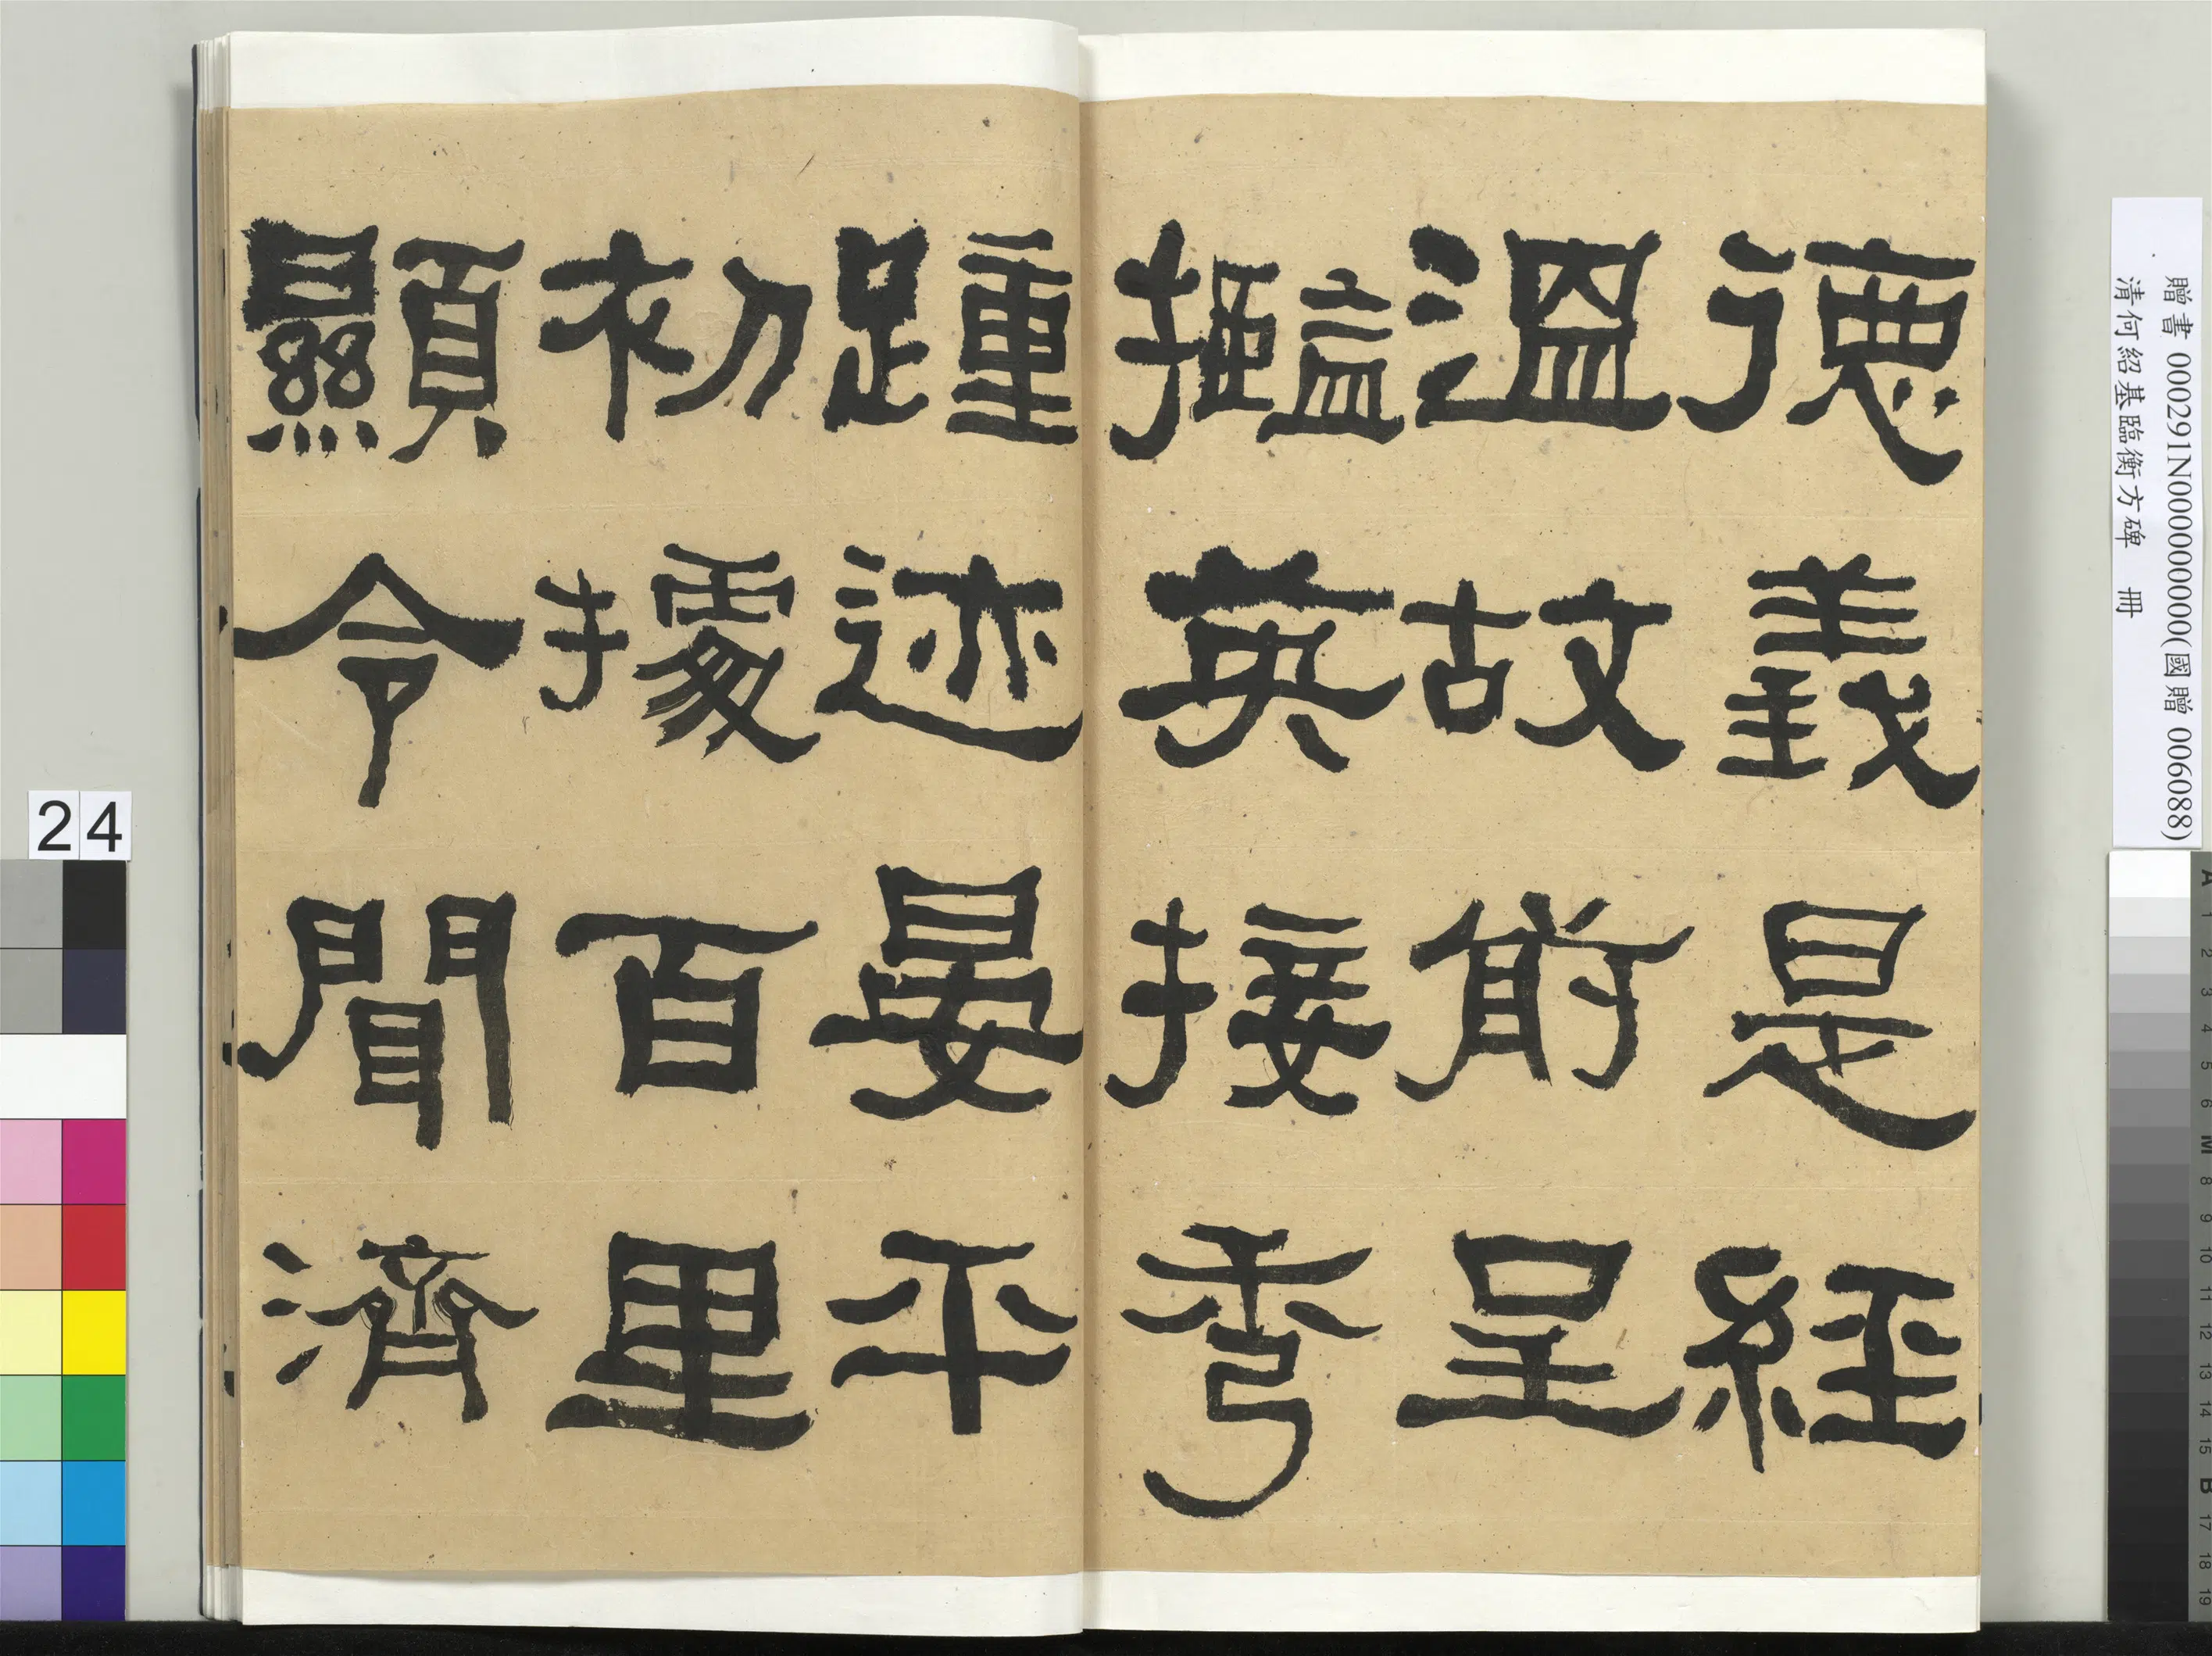 德義是經
溫故前呈
㩜英接秀
踵迹晏平
初據百里
顯令聞濟
贈書 000291N000000000(國贈 006088)
清何紹基臨衡方碑 冊
24
A 1 2 3 4 5 6 M 8 9 10 11 12 13 14 15 B 17 18 19